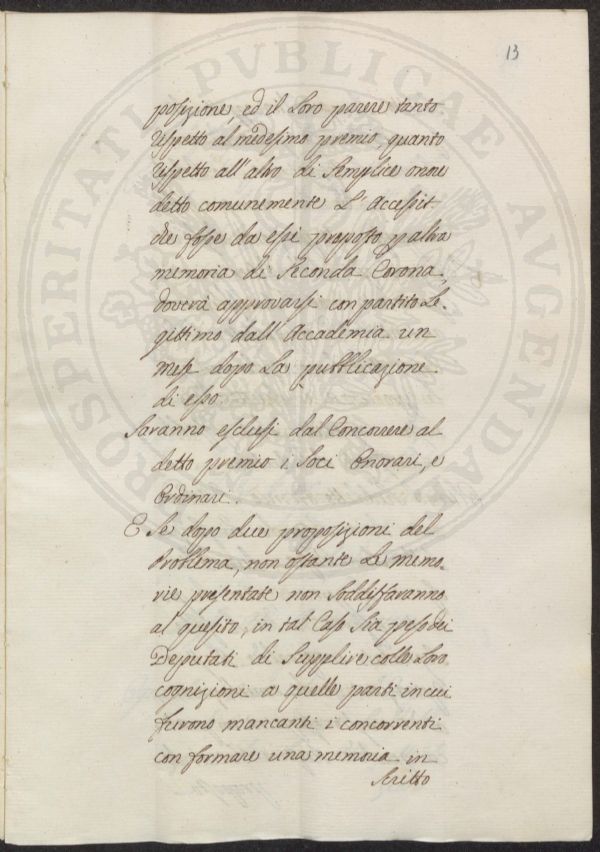 13
posizione, ed il Loro parere tanto
rispetto al medesimo premio, quanto
rispetto all'altro di Semplice onore
detto comunemente L'Accessit
che fosse da essi proposto p altra
memoria di Seconda Corona,
dovera approvarsi con partito Le-
gittimo dall'Accademia un
mese dopo La pubblicazione
di esso.
Saranno esclusi dal Concorrere al
detto premio i Soci Onorari, e
Ordinari.
E Se dopo due proposizioni del
Problema, non ostante Le memo-
rie presentate non Soddisfaranno
al quesito, in tal Caso Sia peso dei
Deputati di Supplire colle Loro
cognizioni a quelle parti in cui
furono mancanti i concorrenti
con formare una memoria in
Scritto
PROSPERITATI PVBLICAE AVGENDAE